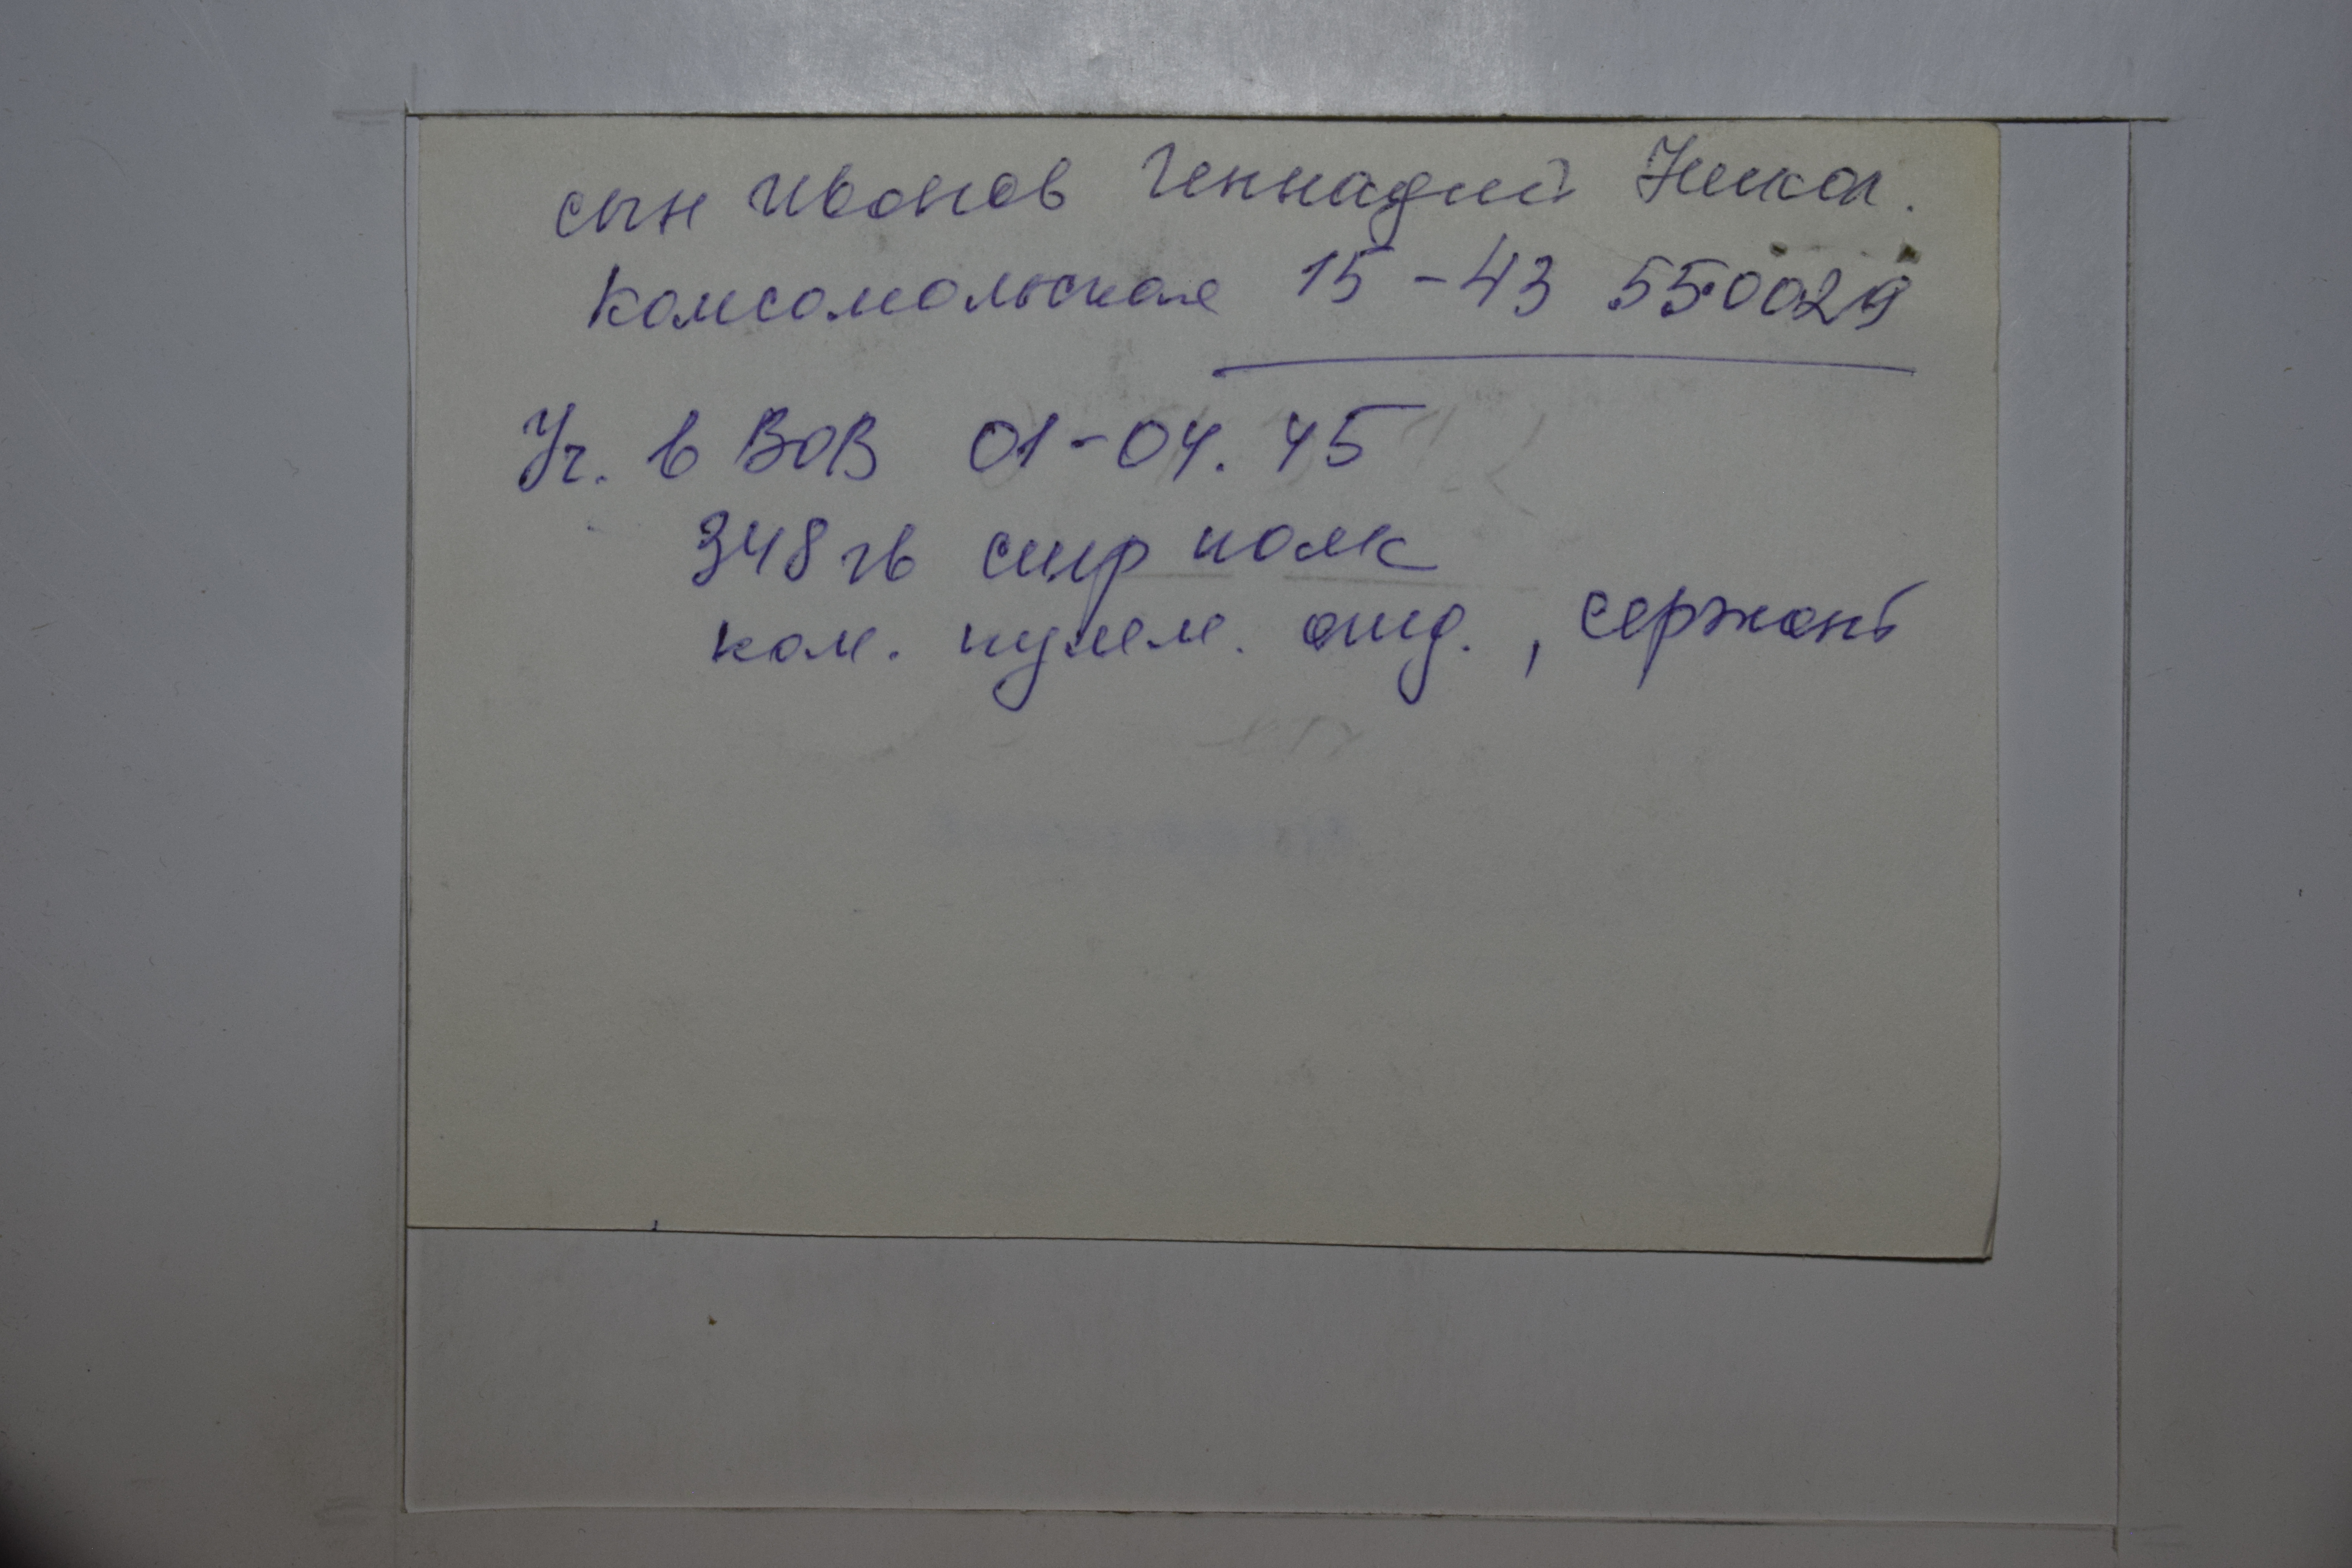 сын Иванов Геннадий Никол.
Комсомольская 15-43 550029
Уч. в ВОВ 01-04.45
348 гв стр полк
ком. пулем. отд., сержант